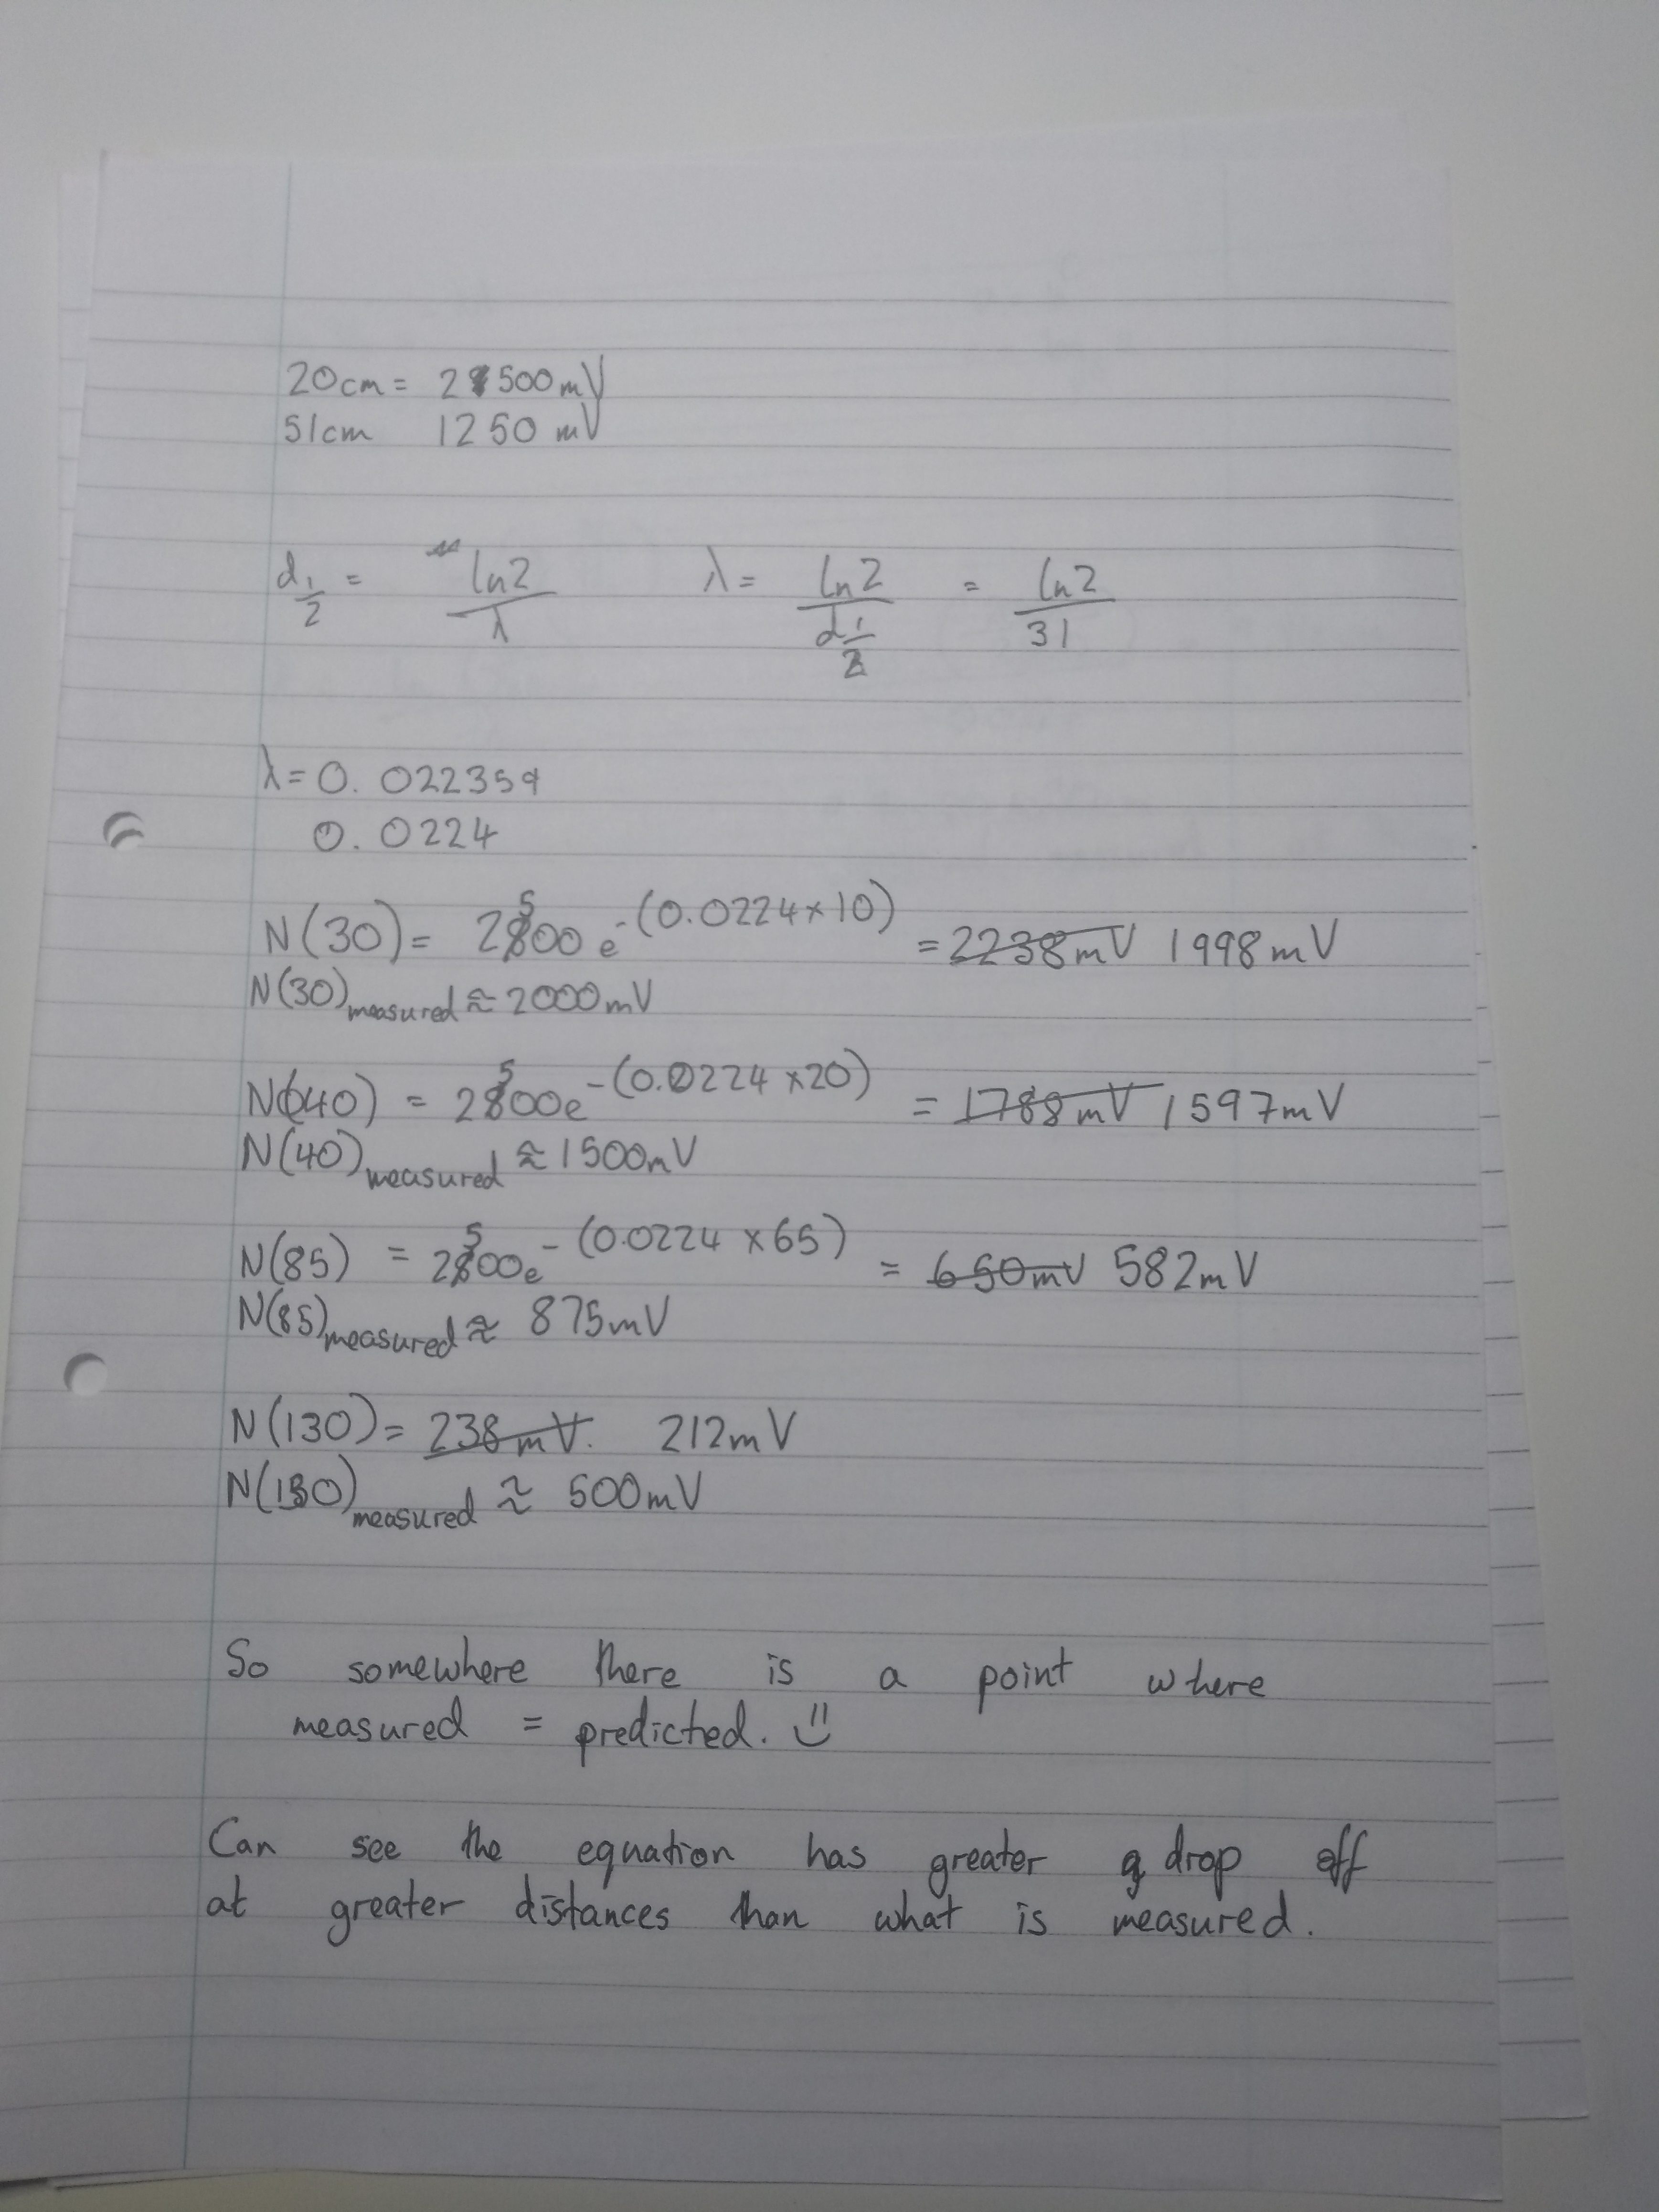 20cm = 2500mV
51cm 1250 mV
d½ = ln2/λ λ = ln2/d½ = ln2/31
λ = 0.022359
0.0224
N(30) = 2500 e^-(0.0224×10) = 2238mV 1998mV
N(30)measured ≈ 2000mV
N(40) = 2500e^-(0.0224×20) = 1788mV 1597mV
N(40)measured ≈ 1500mV
N(85) = 2500e^-(0.0224×65) = 650mV 582mV
N(85)measured ≈ 875mV
N(130) = 238mV. 212mV
N(130)measured ≈ 500mV
So somewhere there is a point where
measured = predicted.
Can see the equation has greater drop off
at greater distances than what is measured.